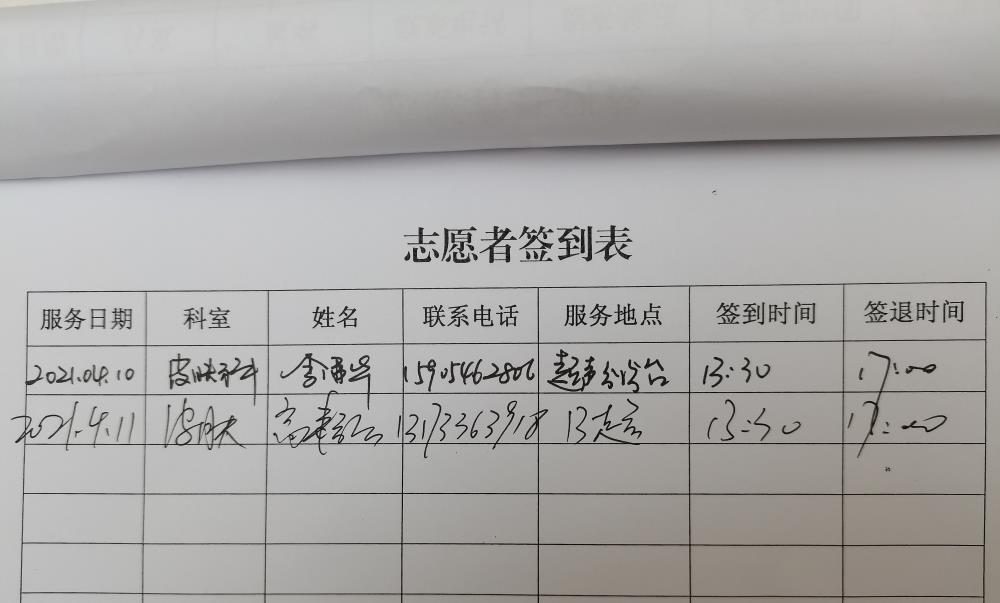 志愿者签到表
服务日期 科室 姓名 联系电话 服务地点 签到时间 签退时间
2021.04.10 皮肤科 李 15905462806 超声分诊台 13:30 17:00
2021.4.11 皮肤 高 13173363918 B超 13:30 17:00